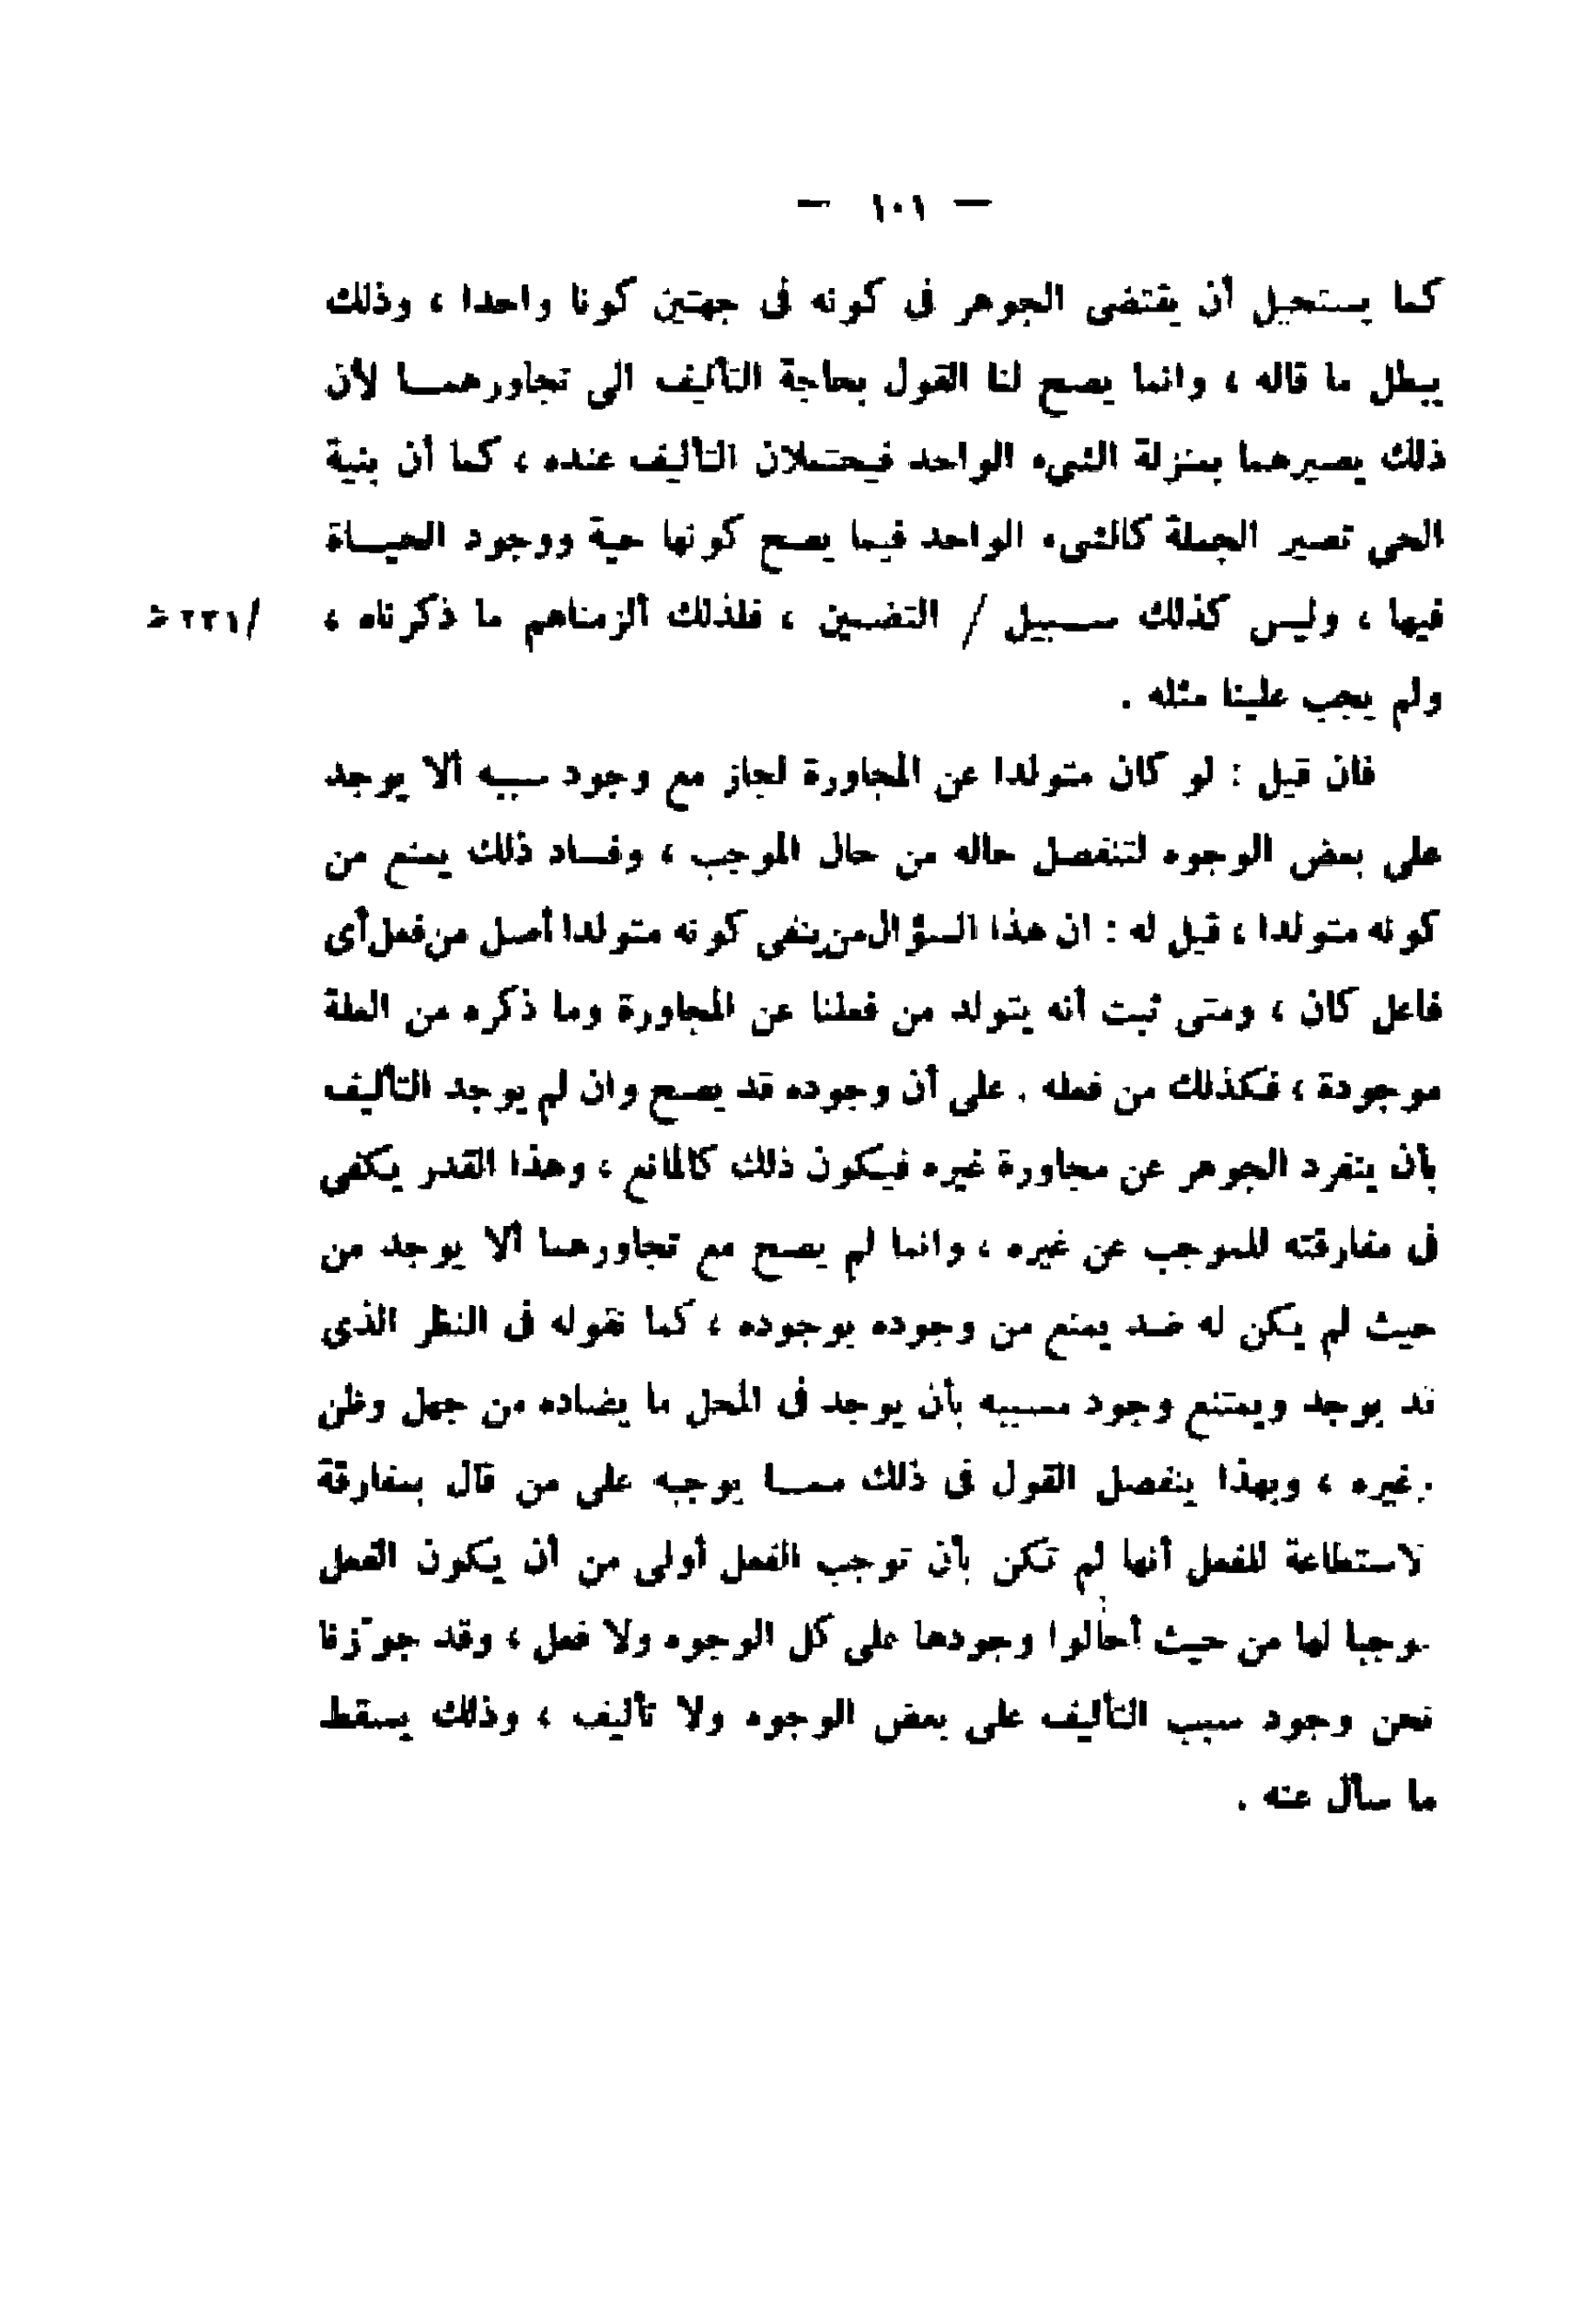 — ١٠١ —
كما يستحيل أن يقتضى الجوهر فى كونه فى جهتين كونا واحدا ، وذلك
يبطل ما قاله ، وانما يصح لنا القول بحاجة التأليف الى تجاورهما لأن
ذلك يصيرهما بمنزلة الشىء الواحد فيحتملان التأليف عنده ، كما أن بنية
الحي تصير الجملة كالشىء الواحد فيما يصح كونها حية ووجود الحياة
فيها ، وليس كذلك سبيل / التضمين ، فلذلك ألزمناهم ما ذكرناه ،
ولم يجب علينا مثله .
فان قيل : لو كان متولدا عن المجاورة لجاز مع وجود سببه ألا يوجد
على بعض الوجوه لتنفصل حاله من حال الموجب ، وفساد ذلك يمنع من
كونه متولدا ، قيل له : ان هذا السؤال من ينفى كونه متولدا أصل من فعل أى
فاعل كان ، ومتى ثبت أنه يتولد من فعلنا عن المجاورة وما ذكره من العلة
موجودة ، فكذلك من فعله . على أن وجوده قد يصح وان لم يوجد التأليف
بأن ينفرد الجوهر عن مجاورة غيره فيكون ذلك كالمانع ، وهذا القدر يكفى
فى مفارقته للموجب عن غيره ، وانما لم يصح مع تجاورهما ألا يوجد من
حيث لم يكن له ضد يمنع من وجوده بوجوده ، كما نقوله فى النظر الذى
قد يوجد ويمتنع وجود مسببه بأن يوجد فى المحل ما يضاده من جهل وظن
وغيره ، وبهذا ينفصل القول فى ذلك مما يوجبه على من قال بمفارقة
لاستطاعة للفعل أنها لم تكن بأن توجب الفعل أولى من أن يكون الفعل
موجبا لها من حيث أحالوا وجودها على كل الوجوه ولا فعل ، وقد جوّزنا
نحن وجود سبب التأليف على بعض الوجوه ولا تأليف ، وذلك يسقط
ما سأل عنه .